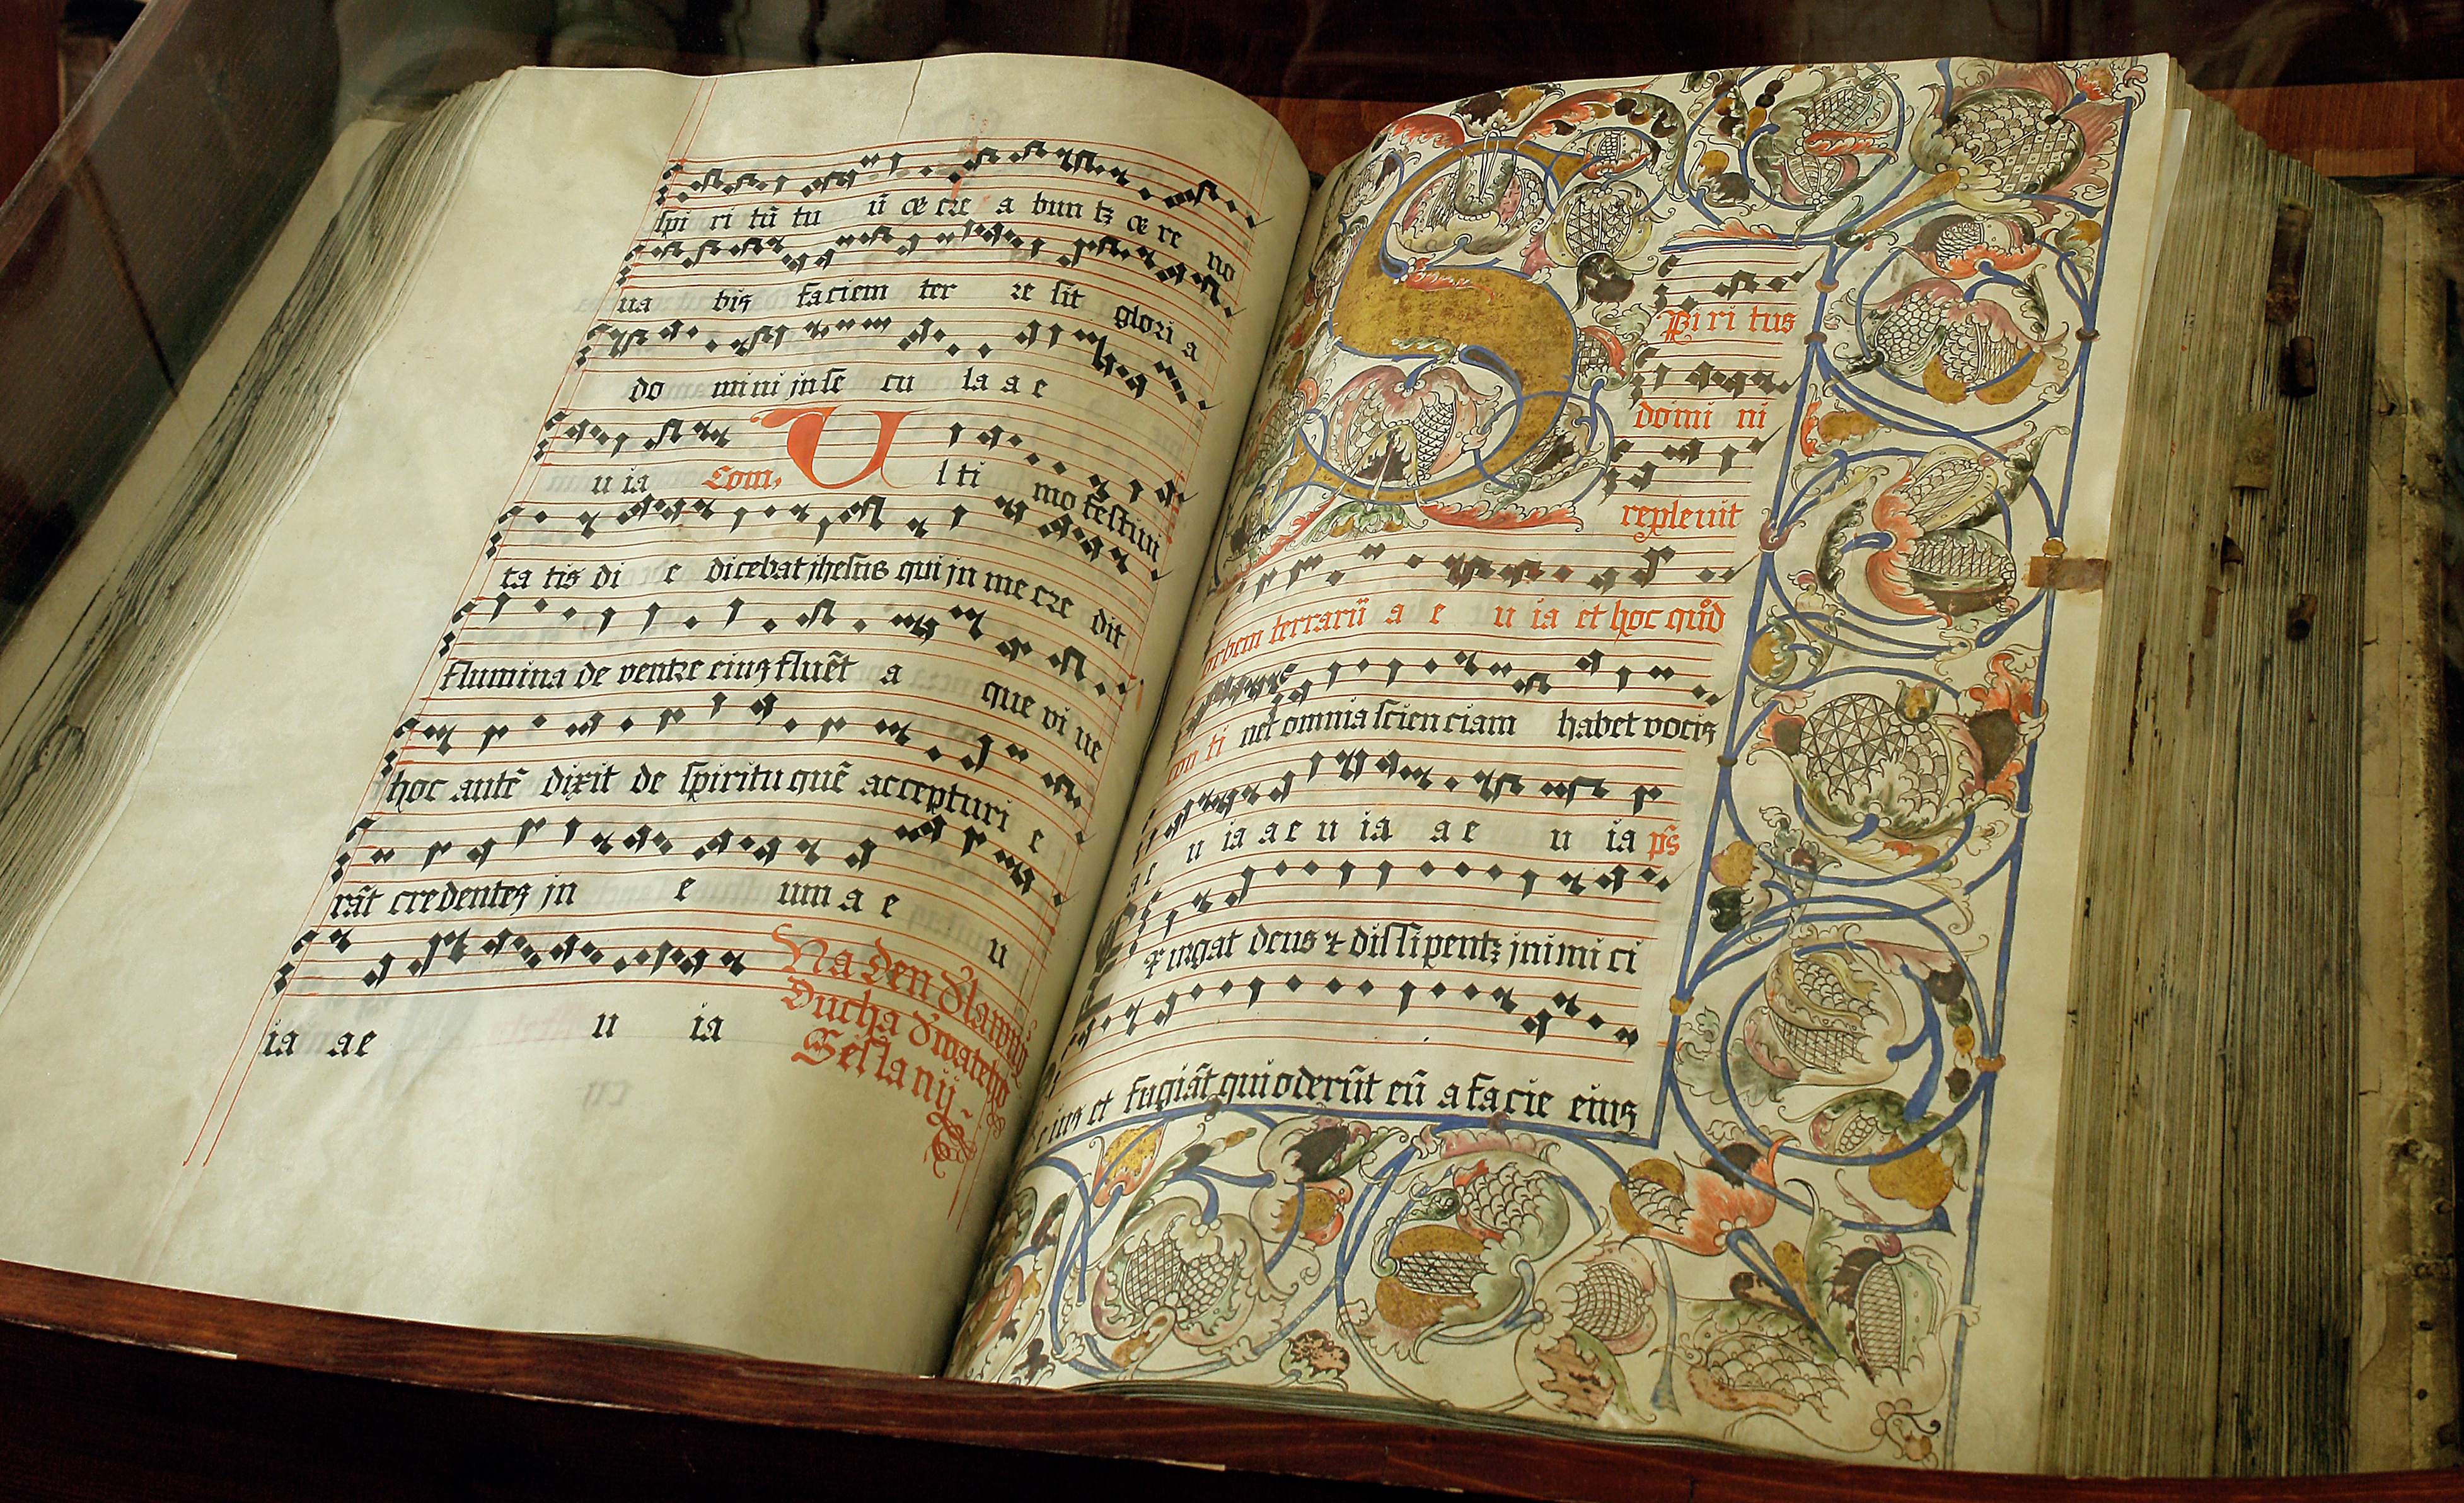 spi ri tū tu ū et cre a bun tꝛ et re no
ua bis faciem ter re sit glori a
do mini in se cu la a e
u ia Com. U l ti mo festiui
ta tis di e dicebat ihesus qui in me cre dit
flumina de ventre eius fluēt a que vi ue
hoc autē dixit de spiritu quē accepturi e
rāt credentes in e um a e u
ia ae u ia
Na den Slawny
Ducha Swateho
Sesla nij
S pi ri tus
domi ni
repleuit
orbem terrarū a e u ia et hoc quod
con ti net omnia scien ciam habet vocis
a e u ia a e u ia a e u ia ps
Ex urgat deus ⁊ dissipentꝛ inimi ci
e ius et fugiāt qui oderūt eū a facie eius